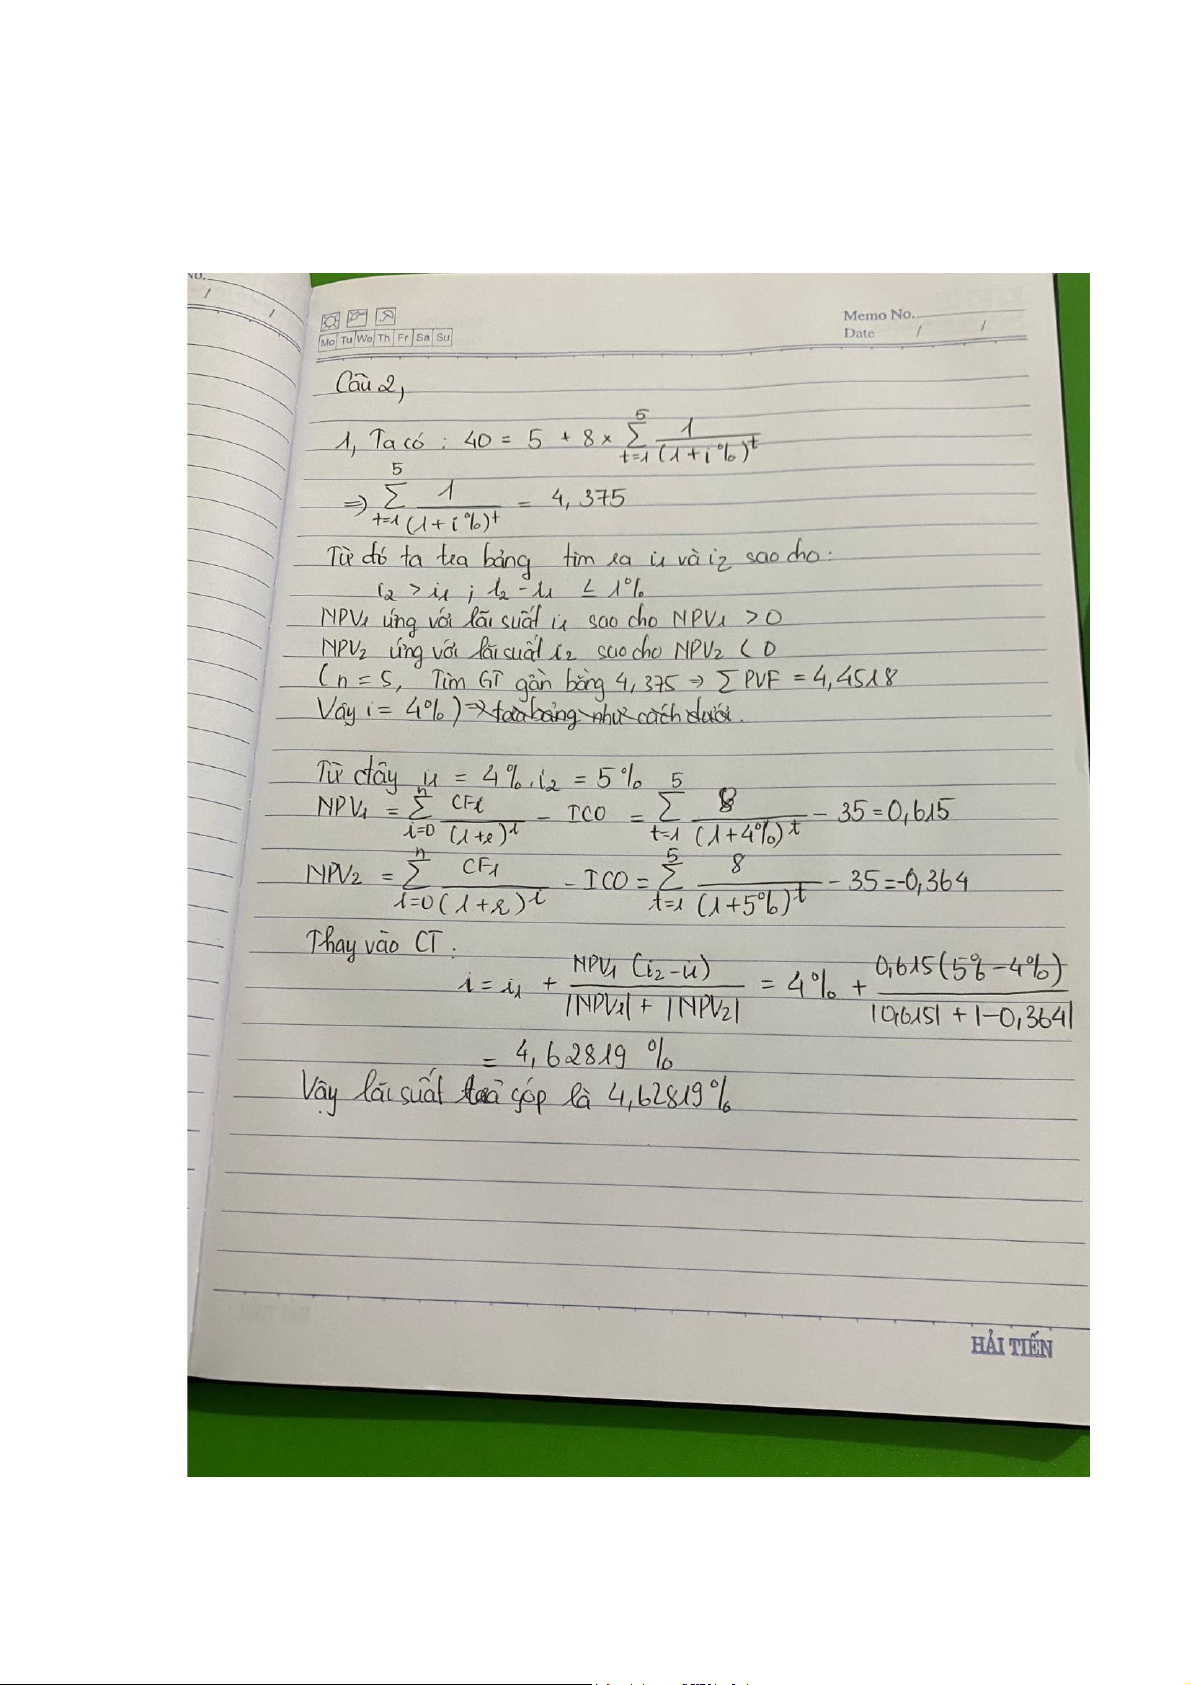 NO.
/ /
Mo Tu We Th Fr Sa Su
Memo No.
Date / /
Câu 2,
1, Ta có : 40 = 5 + 8 × ∑_{t=1}^{5} 1/(1+i%)^t
⇒ ∑_{t=1}^{5} 1/(1+i%)^t = 4,375
Từ đó ta tra bảng tìm ra i1 và i2 sao cho:
i2 > i1 ; i2 - i1 ≤ 1%
NPV1 ứng với lãi suất i1 sao cho NPV1 > 0
NPV2 ứng với lãi suất i2 sao cho NPV2 < 0
( n = 5, Tìm GT gần bằng 4,375 → ∑ PVF = 4,4518
Vậy i = 4%) → tra bảng như cách dưới.
Từ đây i1 = 4%, i2 = 5%
NPV1 = ∑_{i=0}^{n} CFi/(1+r)^i - ICO = ∑_{t=1}^{5} 8/(1+4%)^t - 35 = 0,615
NPV2 = ∑_{i=0}^{n} CFi/(1+r)^i - ICO = ∑_{t=1}^{5} 8/(1+5%)^t - 35 = -0,364
Thay vào CT :
i = i1 + NPV1 (i2 - i1)/(|NPV1| + |NPV2|) = 4% + 0,615(5% - 4%)/(|0,615| + |-0,364|)
= 4,62819 %
Vậy lãi suất trả góp là 4,62819%
HẢI TIẾN